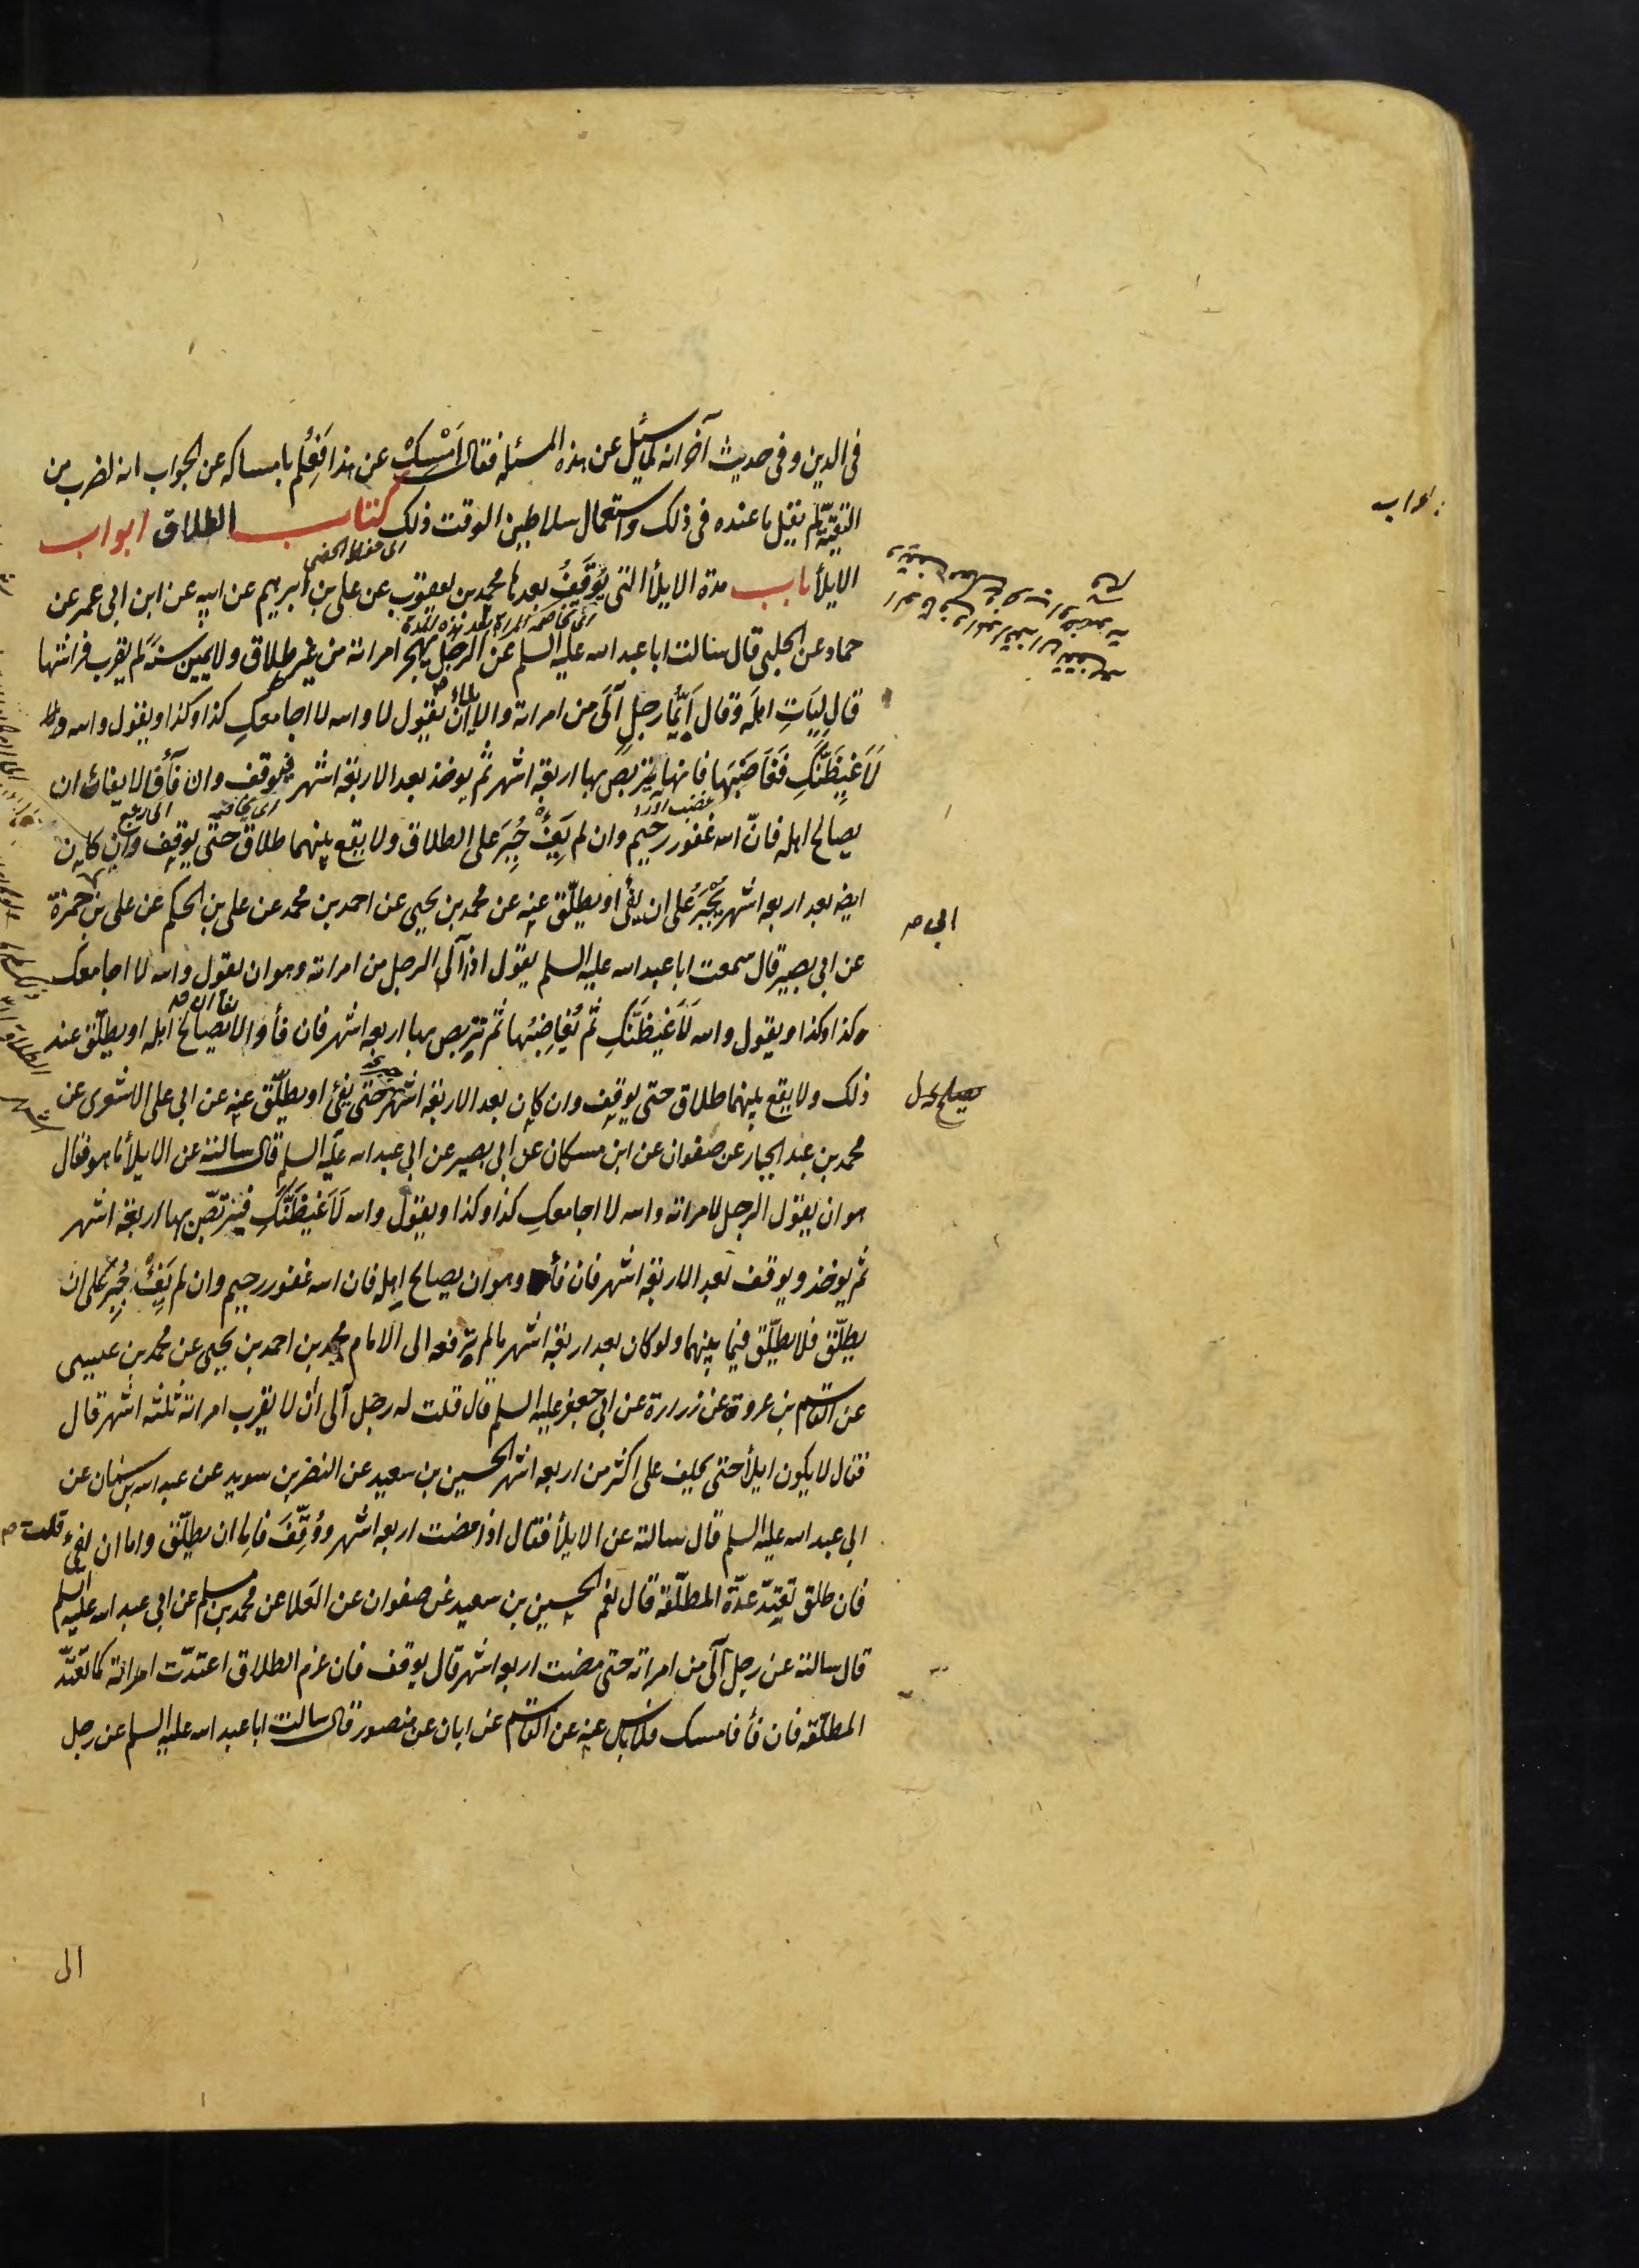 فى الدين وفى حديث آخر انه لما سئل عن هذه المسئلة فقال اَمْسِكْ عن هذا فَعُلِم بامساكه عن الجواب انه لضرب من
التقيّة لم يقل ما عنده فى ذلك واستعمال سلاطين الوقت ذلك كتاب الطلاق ابواب
الايلأ باب مدة الايلأ التى يُوَقَّفُ بعدها محمد بن يعقوب عن على بن ابرهيم عن ابيه عن ابن ابى عمير عن
حماد عن الحلبى قال سالت ابا عبد الله عليه السلم عن الرجل يهجر امراته من غير طلاق ولا يمين سنة لم يقرب فراشها
قال ليَاتِ اهلَه وقال اَيُّما رجلٍ آلَى من امراته والايلاء ان يقول لا والله لا اجامعكِ كذا وكذا ويقول والله
لَاَغِيظَنَّكِ فَغَاضَبَهَا فانها يتربص بها اربعة اشهر ثم يوخذ بعد الاربعة اشهر فيوقف وان فأ والايفاء ان
يصالح اهله فانّ الله غفور رحيم وان لم يَفِئْ جُبِرَ على الطلاق ولا يقع بينهما طلاق حتى يوقف وان كان
ايضا بعد اربعة اشهر يُجْبَرُ على ان يفئ او يطلّق عنه عن محمد بن يحيى عن احمد بن محمد عن على بن الحكم عن على بن حمزة
عن ابى بصير قال سمعت ابا عبد الله عليه السلم يقول اذا آلى الرجل من امراته وهو ان يقول والله لا اجامعك
كذا وكذا ويقول والله لَاَغيظَنَّكِ ثم يُغاضِبُها ثم يتربص بها اربعة اشهر فان فأ والايصالح اهله او يطلّق عند
ذلك ولا يقع بينهما طلاق حتى يوقف وان كان بعد الاربعة اشهر حتى يفئ او يطلّق عنه عن ابى على الاشعرى عن
محمد بن عبد الجبار عن صفوان عن ابن مسكان عن ابى بصير عن ابى عبد الله عليه السلم قال سالته عن الايلأ ما هو فقال
هو ان يقول الرجل لامراته والله لا اجامعكِ كذا وكذا ويقول والله لَاَغيظَنَّكِ فيتربّص بها اربعة اشهر
ثم يوخذ ويوقف بعد الاربعة اشهر فان فأ وهو ان يصالح اهله فان الله غفور رحيم وان لم يَفِئْ جُبِرَ على ان
يطلّق فلا يطلّق فيما بينهما ولو كان بعد اربعة اشهر ما لم ترفعه الى الامام محمد بن احمد بن يحيى عن محمد بن عيسى
عن القاسم بن عروة عن زرارة عن ابى جعفر عليه السلم قال قلت له رجل آلى ان لا يقرب امراته ثلثة اشهر قال
فقال لا يكون ايلأ حتى يحلف على اكثر من اربعة اشهر الحسين بن سعيد عن النضر بن سويد عن عبد الله بن سنان عن
ابى عبد الله عليه السلم قال سالته عن الايلأ فقال اذا مضت اربعة اشهر ووُقِّفَ فاما ان يطلّق واما ان يفئ قلت
فان طلق تعتدّ عدّة المطلّقة قال نعم الحسين بن سعيد عن صفوان عن العلا عن محمد بن مسلم عن ابى عبد الله عليه السلم
قال سالته عن رجل آلى من امراته حتى مضت اربعة اشهر قال يوقف فان عزم الطلاق اعتدّت امراته كما تعتدّ
المطلّقة فان فأ فامسك فلا باس عنه عن القاسم عن ابان عن منصور قال سالت ابا عبد الله عليه السلم عن رجل
ابى
الى